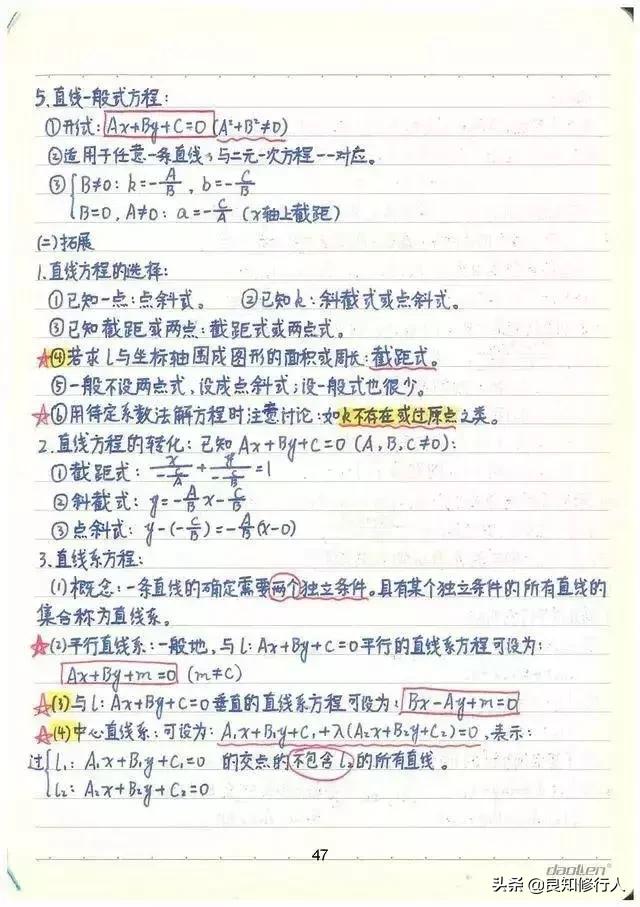 5.直线一般式方程:
①形式: Ax+By+C=0 (A²+B²≠0)
②适用于任意一条直线,与二元一次方程一一对应。
③{B≠0: k=-A/B, b=-C/B
B=0, A≠0: a=-C/A (x轴上截距)
(二)拓展
1.直线方程的选择:
①已知一点:点斜式。 ②已知k:斜截式或点斜式。
③已知截距或两点:截距式或两点式。
☆④若求l与坐标轴围成图形的面积或周长:截距式。
⑤一般不设两点式,设成点斜式;设一般式也很少。
☆⑥用待定系数法解方程时注意讨论:如k不存在或过原点之类。
2.直线方程的转化:已知Ax+By+C=0 (A,B,C≠0):
①截距式: x/(-C/A) + y/(-C/B) =1
②斜截式: y=-A/B x-C/B
③点斜式: y-(-C/B)=-A/B(x-0)
3.直线系方程:
(1)概念:一条直线的确定需要两个独立条件。具有某个独立条件的所有直线的
集合称为直线系。
☆(2)平行直线系:一般地,与l:Ax+By+C=0平行的直线系方程可设为:
Ax+By+m=0 (m≠C)
☆(3)与l:Ax+By+C=0垂直的直线系方程可设为: Bx-Ay+m=0
☆(4)中心直线系:可设为: A₁x+B₁y+C₁+λ(A₂x+B₂y+C₂)=0,表示:
过{l₁: A₁x+B₁y+C₁=0 的交点的不包含l₂的所有直线。
l₂: A₂x+B₂y+C₂=0
47
daollen
头条 @良知修行人